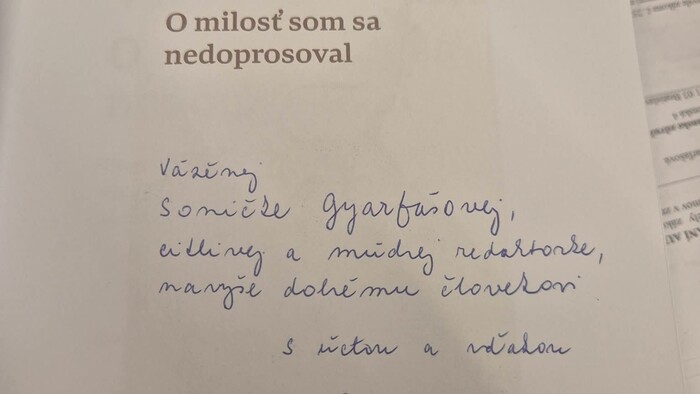 O milosť som sa
nedoprosoval
Vázěnej
Soničke Gyarfášovej,
citlivej a múdrej redaktorke,
navyše dobrému človekovi
s úctou a vďakou